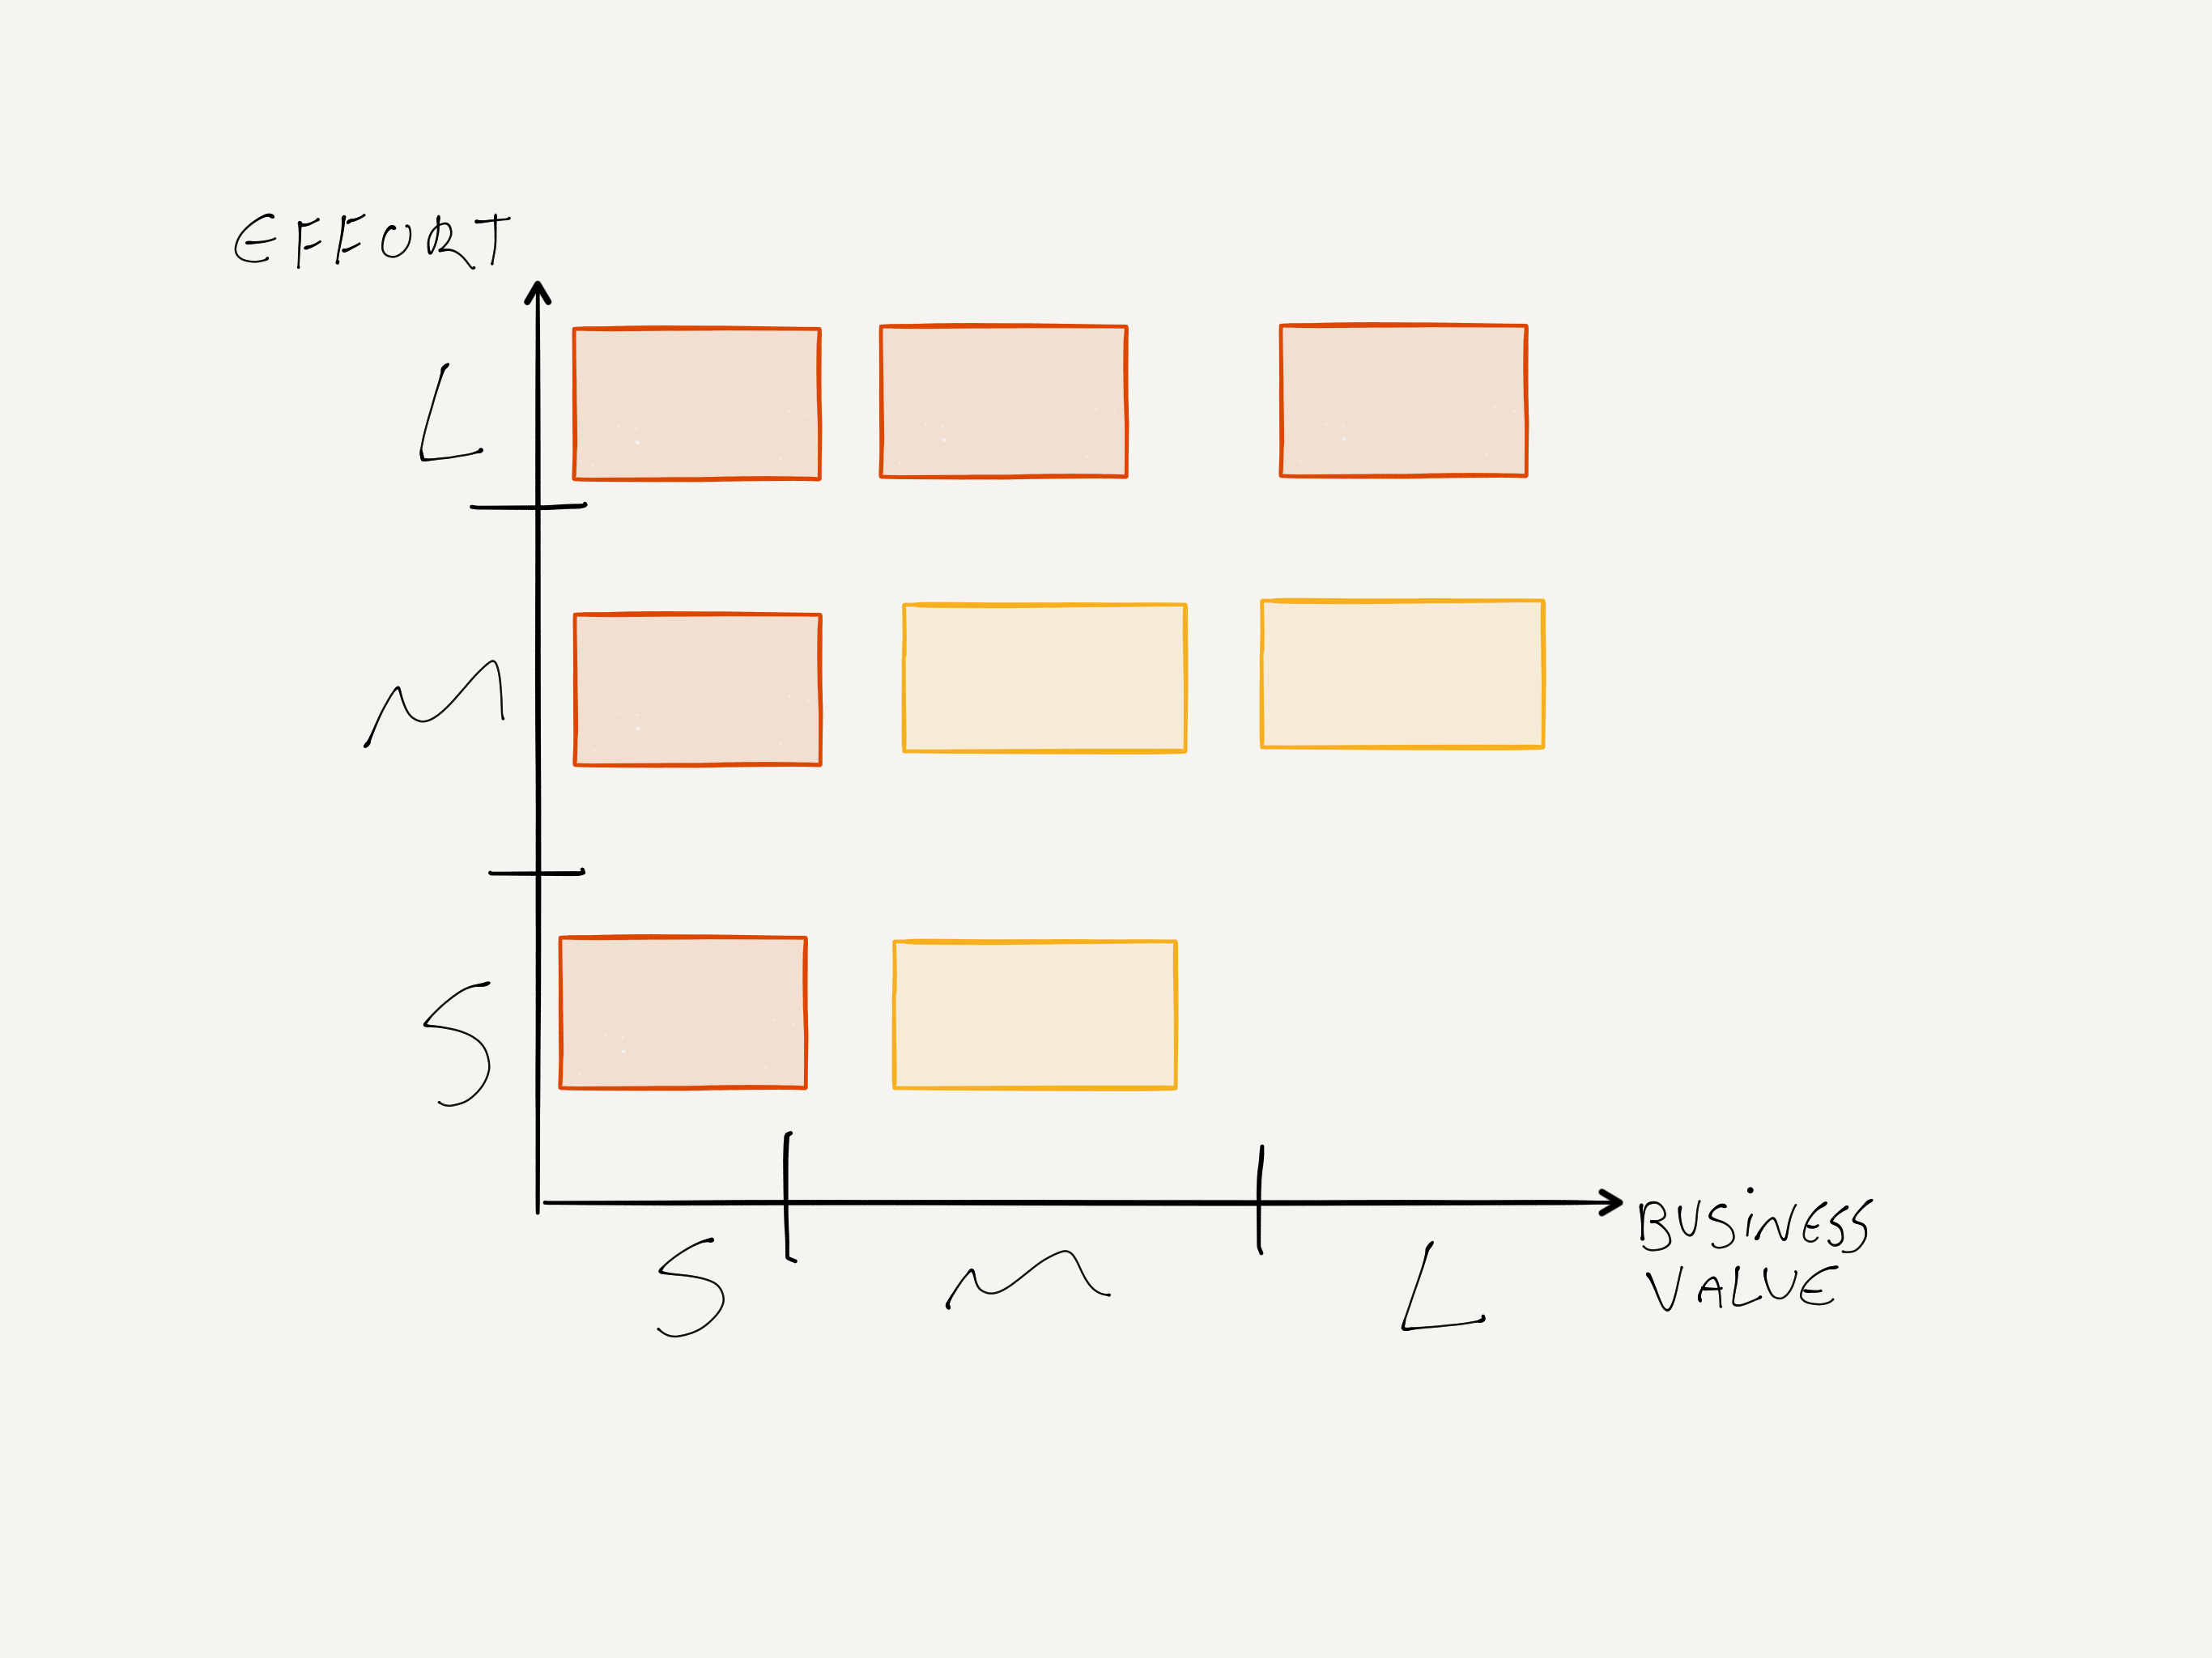 EFFORT
L
M
S
S M L
BUSiNESS
VALUE